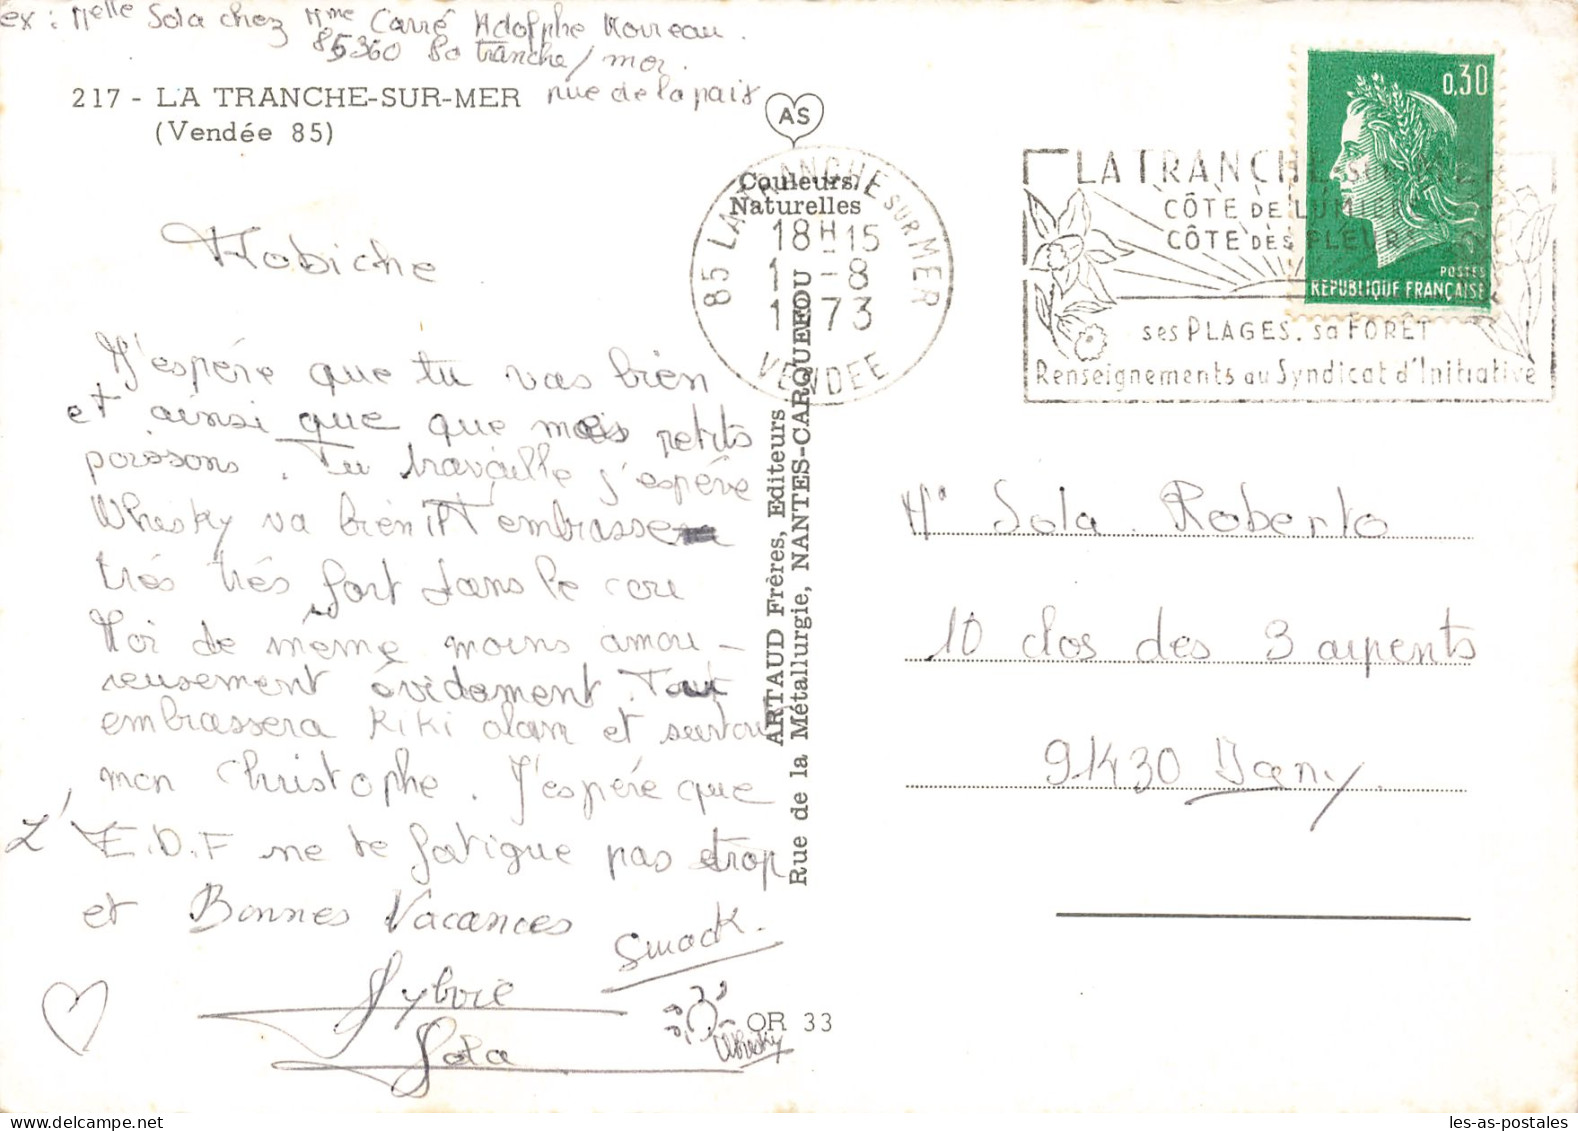 ex: Melle Sola chez Mme Carré Adolphe Moireau.
85360 La tranche/mer.
rue de la paix
217 - LA TRANCHE-SUR-MER
(Vendée 85)
AS
Couleurs
Naturelles
85 LA TRANCHE SUR MER
18H15
1 -8
1973
VENDEE
LA TRANCHE SUR MER
CÔTE DE LUMIERE
CÔTE DES FLEURS
ses PLAGES. sa FORÊT
Renseignements au Syndicat d'Initiative
0,30
POSTES
REPUBLIQUE FRANÇAISE
Ma biche
J'espére que tu vas bien
et ainsi que que mes petits
poissons. Tu travaille j'espére
Whisky va bien il t'embrasse
trés trés fort dans le cou
Moi de même moins amou-
reusement évidament. Tu
embrassera Kiki alain et surtout
mon Christophe. J'espére que
L'E.D.F ne te fatigue pas trop
et Bonnes Vacances
Smack.
Sylvie
Sola
Whisky
OR 33
ARTAUD Frères, Editeurs
Rue de la Métallurgie, NANTES-CARQUEFOU
Mr Sola Roberto
10 clos des 3 arpents
91430 Igny
les-as-postales
delcampe.net